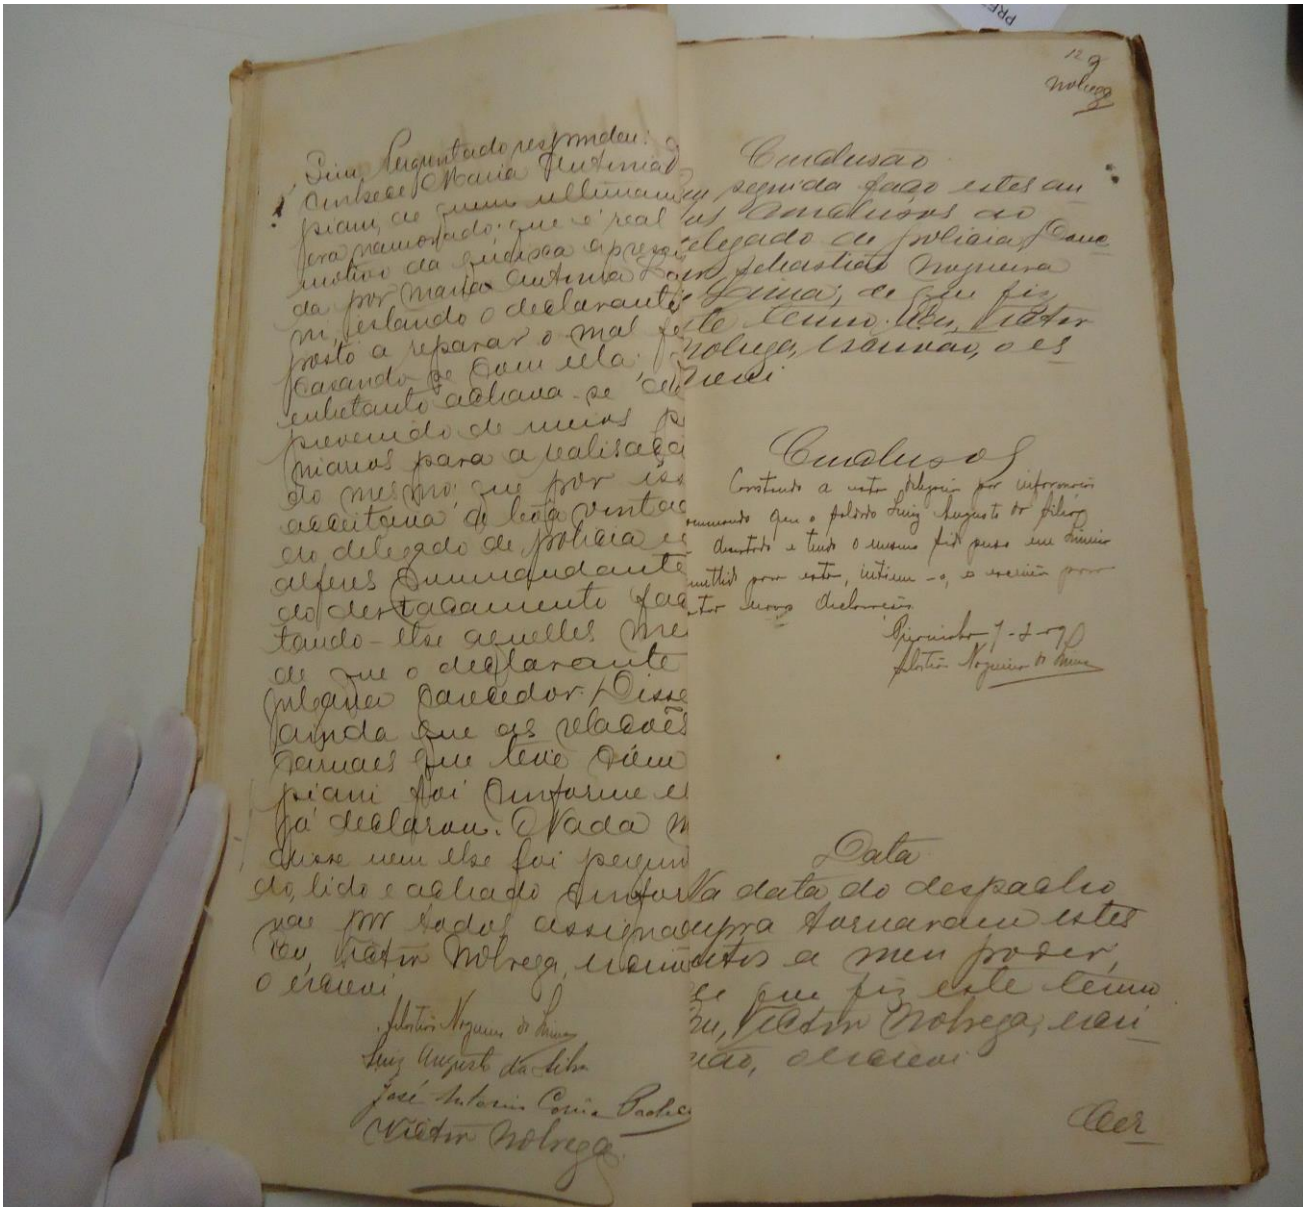 respondeu:
conhece Maria Antonia
piani, de quem ultimam
era namorado; que é real
motivo da queixa apresen
da por Maria Antonia
ni, estando o declarante
posto a reparar o mal fe
casando-se com ella;
entretanto achava-se de
prevenido de meios pe
niarios para a realisaçã
do mesmo; que por iss
acceitaria de bôa vontad
do delegado de policia e
alferes commandante
do destacamento fac
tando-lhe aquelles me
de que o declarante
julgava carecedor. Disse
ainda que as relações
carnaes que teve com
piani foi conforme e
já declarou. Nada m
disse nem lhe foi pergun
do, lido e achado confor
vae por todos assigna
Eu, Victor Nobrega, escriv
o escrevi
Sebastião Nogueira de Lima
Luiz Augusto da Silva
José Antonio Corrêa Pacheco
Victor Nobrega
12 9
Nobrega
Conclusão
seguida faço estes au
os conclusos ao
elegado de policia
Sebastião Nogueira
Lima, de que fiz
te termo. Eu, Victor
Nobrega, escrivão, o es
crevi
Conclusos
Constando a esta delegacia por informações
que o soldado Luiz Augusto da Silva
e tendo o mesmo sido preso em Limeira
para esta, intime-o, o escrivão para
novas declarações
7-2-
Sebastião Nogueira de Lima
Data
Na data do despacho
supra tornaram estes
autos a meu poder,
de que fiz este termo
Eu, Victor Nobrega, escri
vão, o escrevi